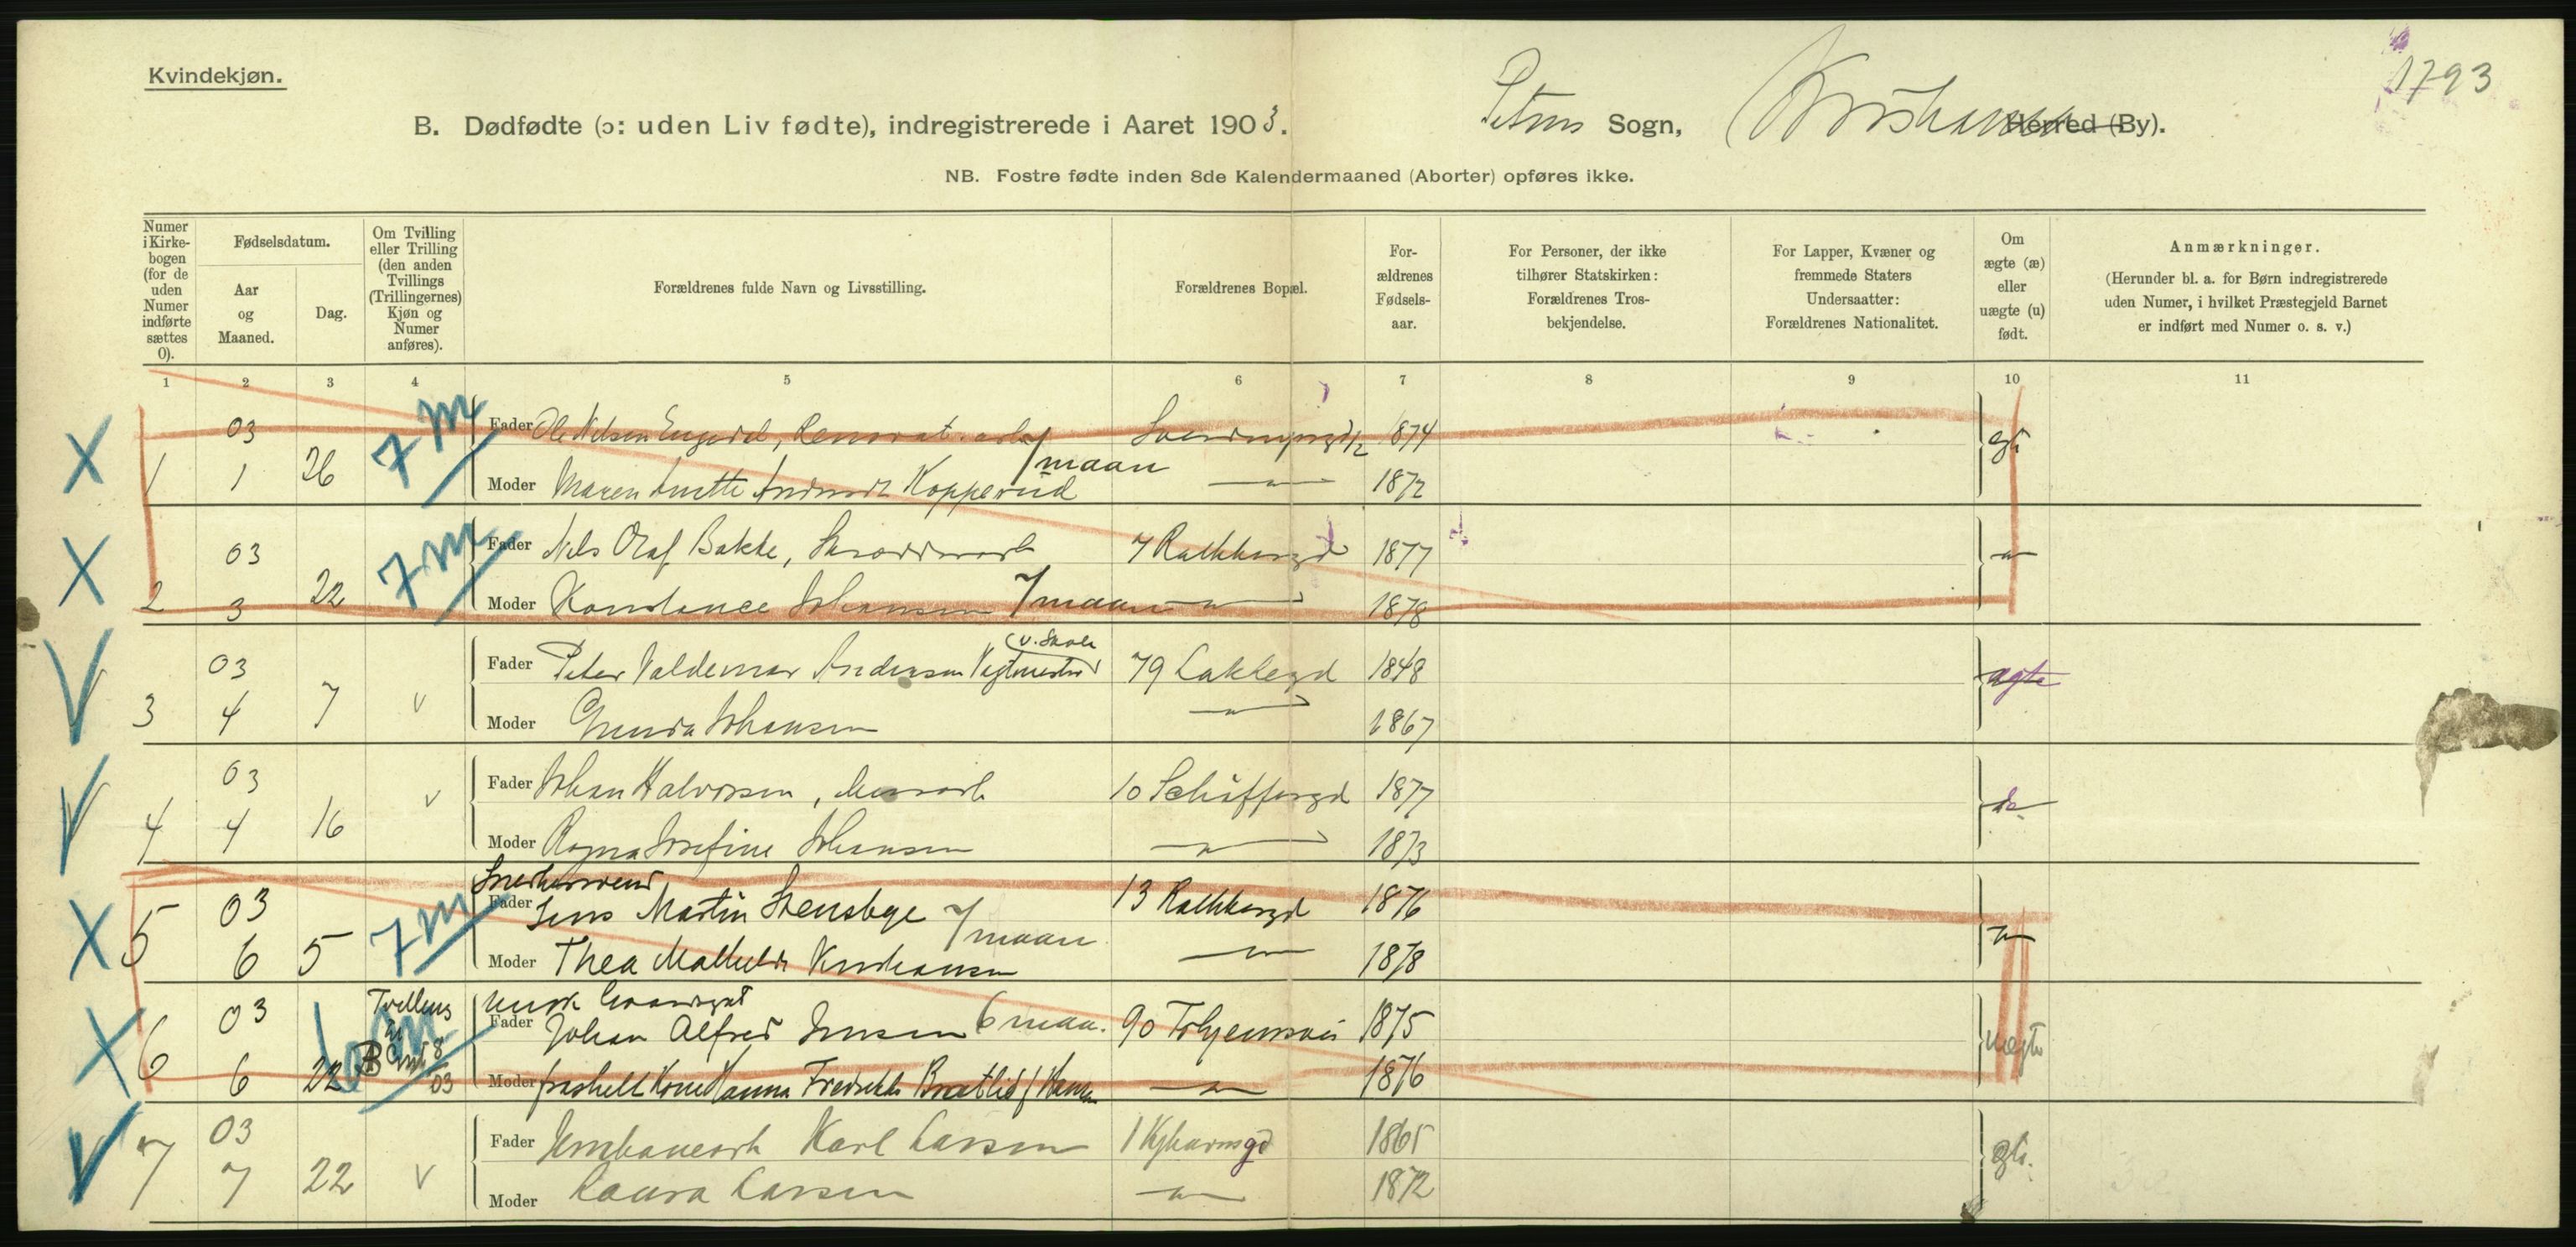 Kvindekjøn.
1793
B. Dødfødte (ɔ: uden Liv fødte), indregistrerede i Aaret 1903. Petrus Sogn, Kristiania Herred (By).
NB. Fostre fødte inden 8de Kalendermaaned (Aborter) opføres ikke.
Numer i Kirke-bogen (for de uden Numer indførte sættes 0).
Fødselsdatum.
Aar og Maaned.
Dag.
Om Tvilling eller Trilling (den anden Tvillings (Trillingernes) Kjøn og Numer anføres).
Forældrenes fulde Navn og Livsstilling.
Forældrenes Bopæl.
For-ældrenes Fødsels-aar.
For Personer, der ikke tilhører Statskirken: Forældrenes Tros-bekjendelse.
For Lapper, Kvæner og fremmede Staters Undersaatter: Forældrenes Nationalitet.
Om ægte (æ) eller uægte (u) født.
Anmærkninger.
(Herunder bl. a. for Børn indregistrerede uden Numer, i hvilket Præstegjeld Barnet er indført med Numer o. s. v.)
1 2 3 4 5 6 7 8 9 10 11
X 1 03 1 26 7 m Fader Ole Nelsen Engerd, Renovat. arb 1874
7 maan
Moder Maren Anette Kopperud 1872
X 2 03 3 22 7 m Fader Nels Olaf Bakke, 7 Rathkesgd 1877
Moder Konstance Johansen 7 maan 1878
V 3 03 4 7 v Fader Peter Valdemar Andersen Vagtmester (v. Skole 79 Lakkegd 1848 ægte
Moder Johansen 1867
V 4 03 4 16 v Fader Johan Halvorsen, 10 Schüffersgd 1877 do
Moder Ragna Josefine Johansen 1873
X 5 03 6 5 7 m Snekkersvend
Fader Jens Martin Stensbye 7 maan 13 Rathkesgd 1876
Moder Thea Mathilde Kristiansen 1878
X 6 03 6 22 6 m Tvilling B 8 03
Fader Johan Alfred Jensen 6 maa. 90 1875 uægte
Moder fraskilt Kone Hanna Fredrikke Bratlid f. Hansen 1876
V 7 03 7 22 v Fader Jernbanearb Karl Larsen 1 Kjhavnsgd 1865 gte.
Moder Laura Larsen 1872